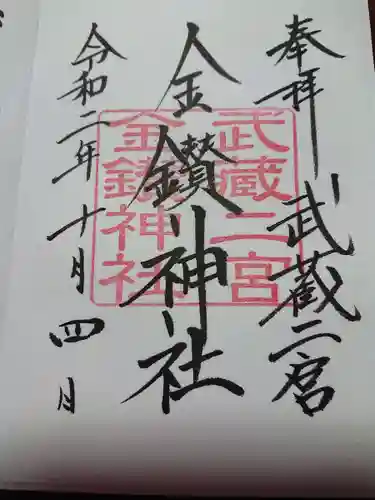 奉拝
武蔵二宮
金鑚神社
令和二年十月四日
武蔵二宮
金鑚神社